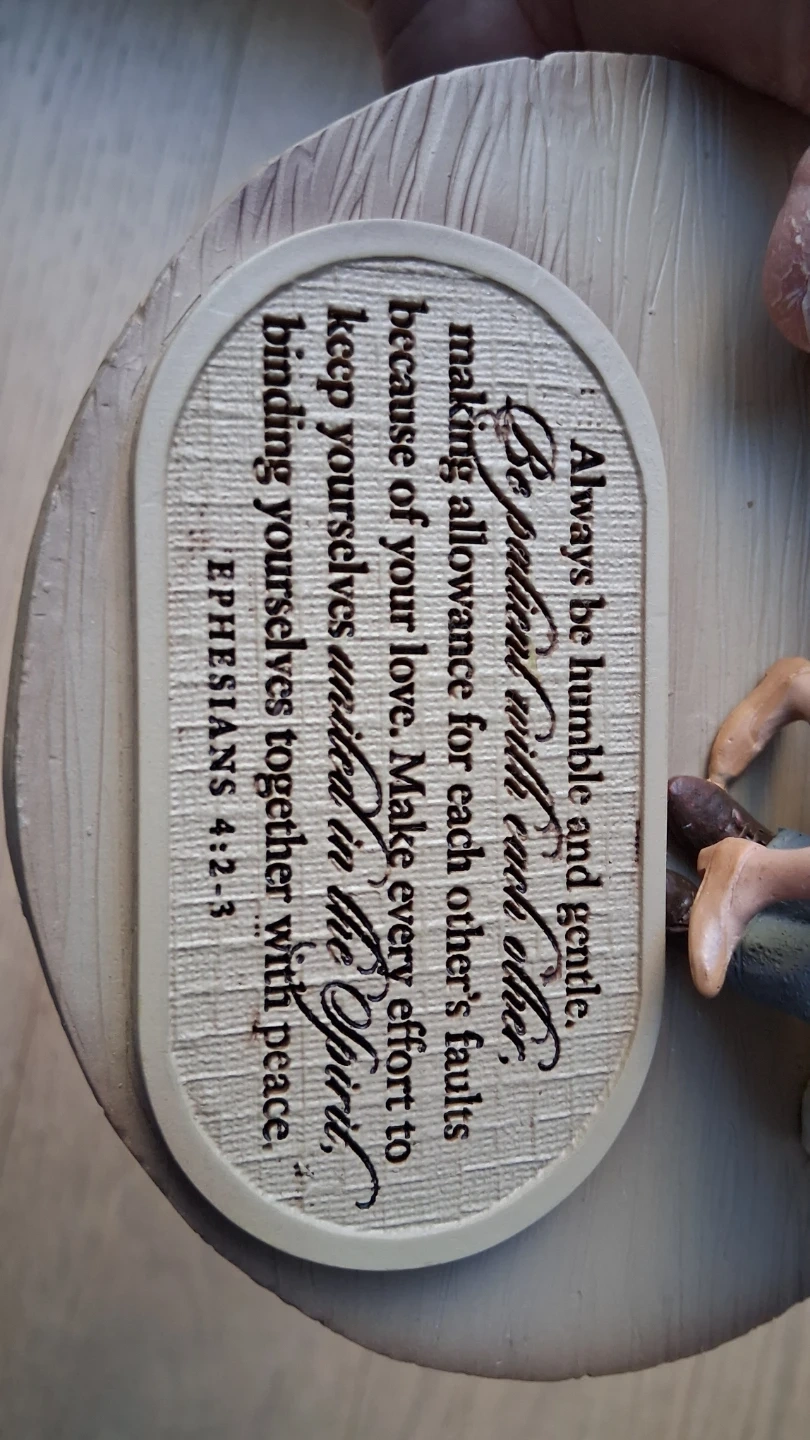 Always be humble and gentle.
Be patient with each other,
making allowance for each other's faults
because of your love. Make every effort to
keep yourselves united in the Spirit,
binding yourselves together with peace.
EPHESIANS 4:2-3